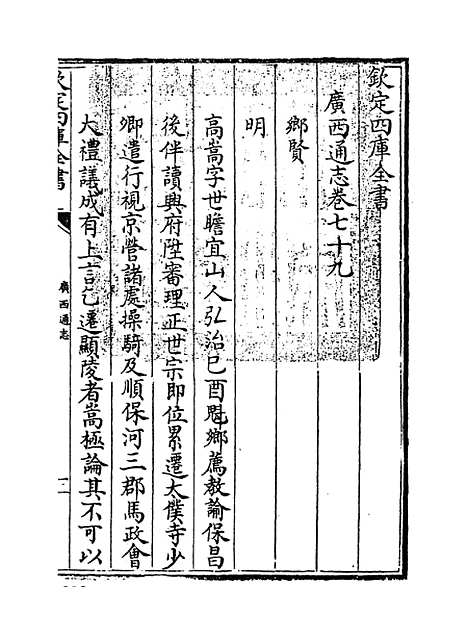 欽定四庫全書
廣西通志卷七十九
鄉賢
明
高嵩字世瞻宜山人弘治己酉魁鄉薦教諭保昌
後伴讀興府陞審理正世宗即位累遷太僕寺少
卿遣行視京營諸處操騎及順保河三郡馬政會
大禮議成有上言乞遷顯陵者嵩極論其不可以
欽定四庫全書
廣西通志